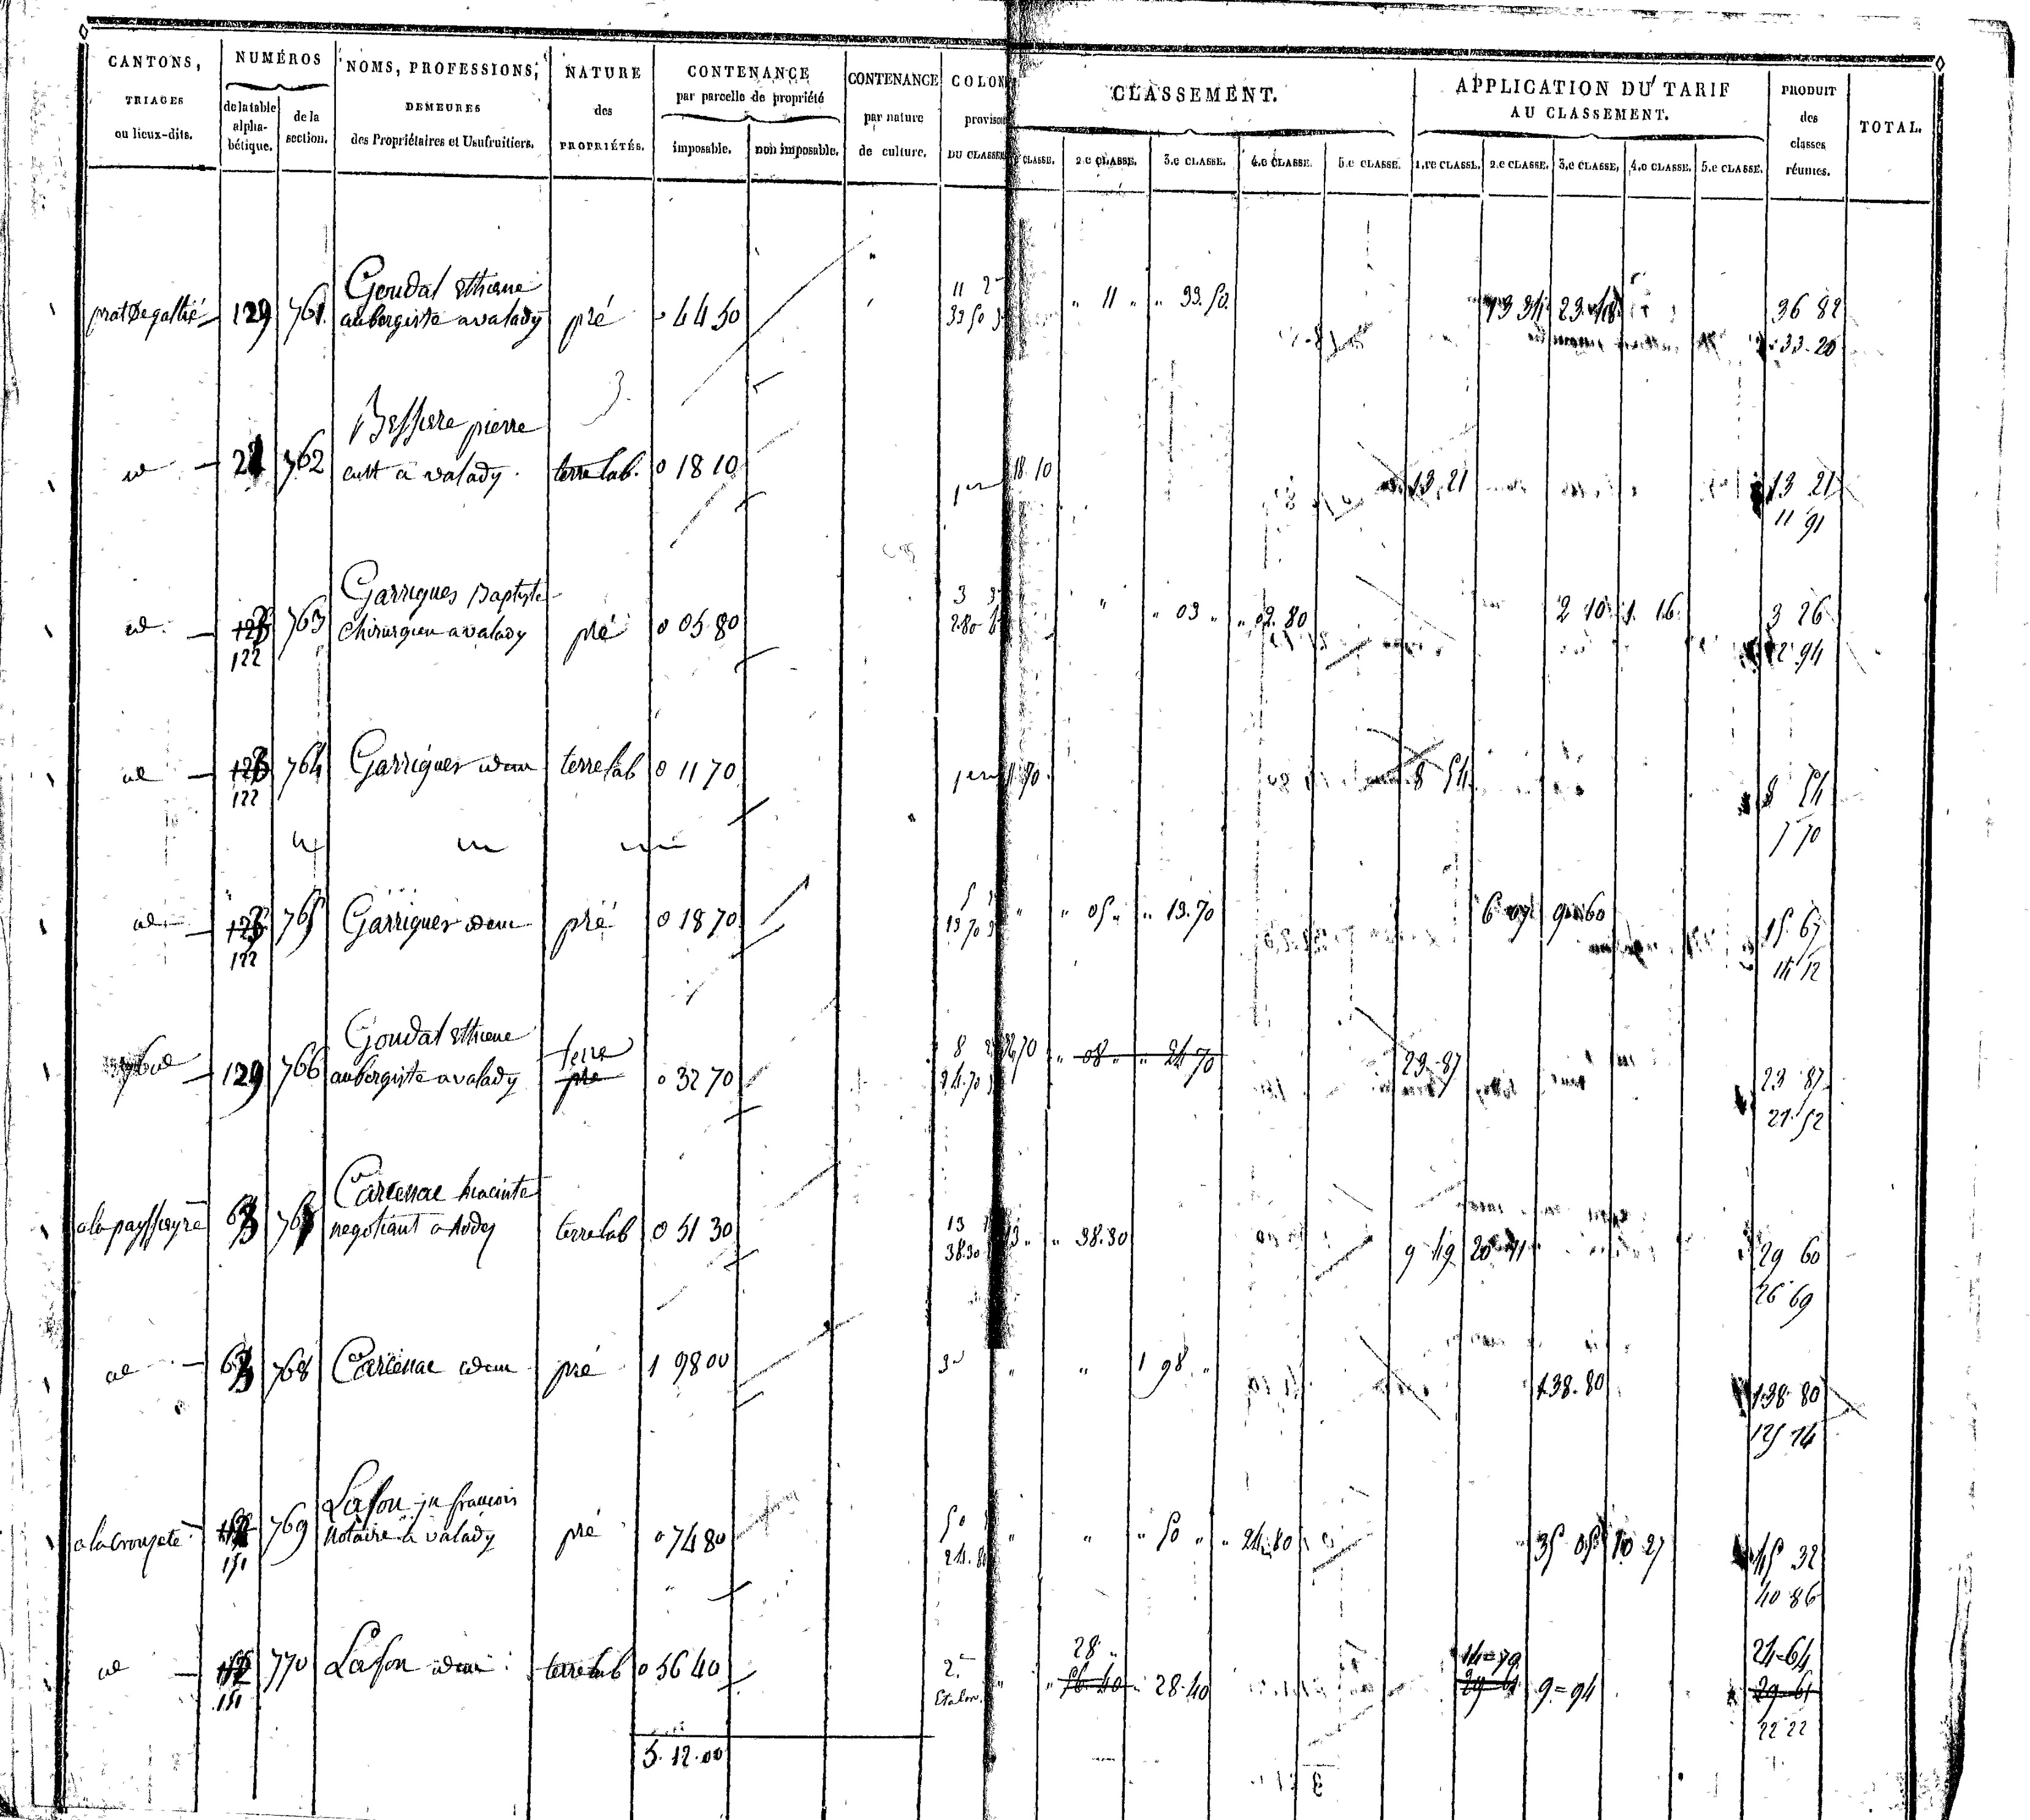 CANTONS, NUMÉROS NOMS, PROFESSIONS, NATURE CONTENANCE CONTENANCE COLON CLASSEMENT. APPLICATION DU TARIF PRODUIT
TRIAGES de la table de la DEMEURES des par parcelle de propriété par nature provisoi AU CLASSEMENT. des TOTAL.
ou lieux-dits. alpha- section. des Propriétaires et Usufruitiers. PROPRIÉTÉS. imposable. non imposable. de culture. DU CLASSEM classes
bétique. CLASSE. 2.e CLASSE. 3.e CLASSE. 4.e CLASSE. 5.e CLASSE. 1.re CLASSE. 2.e CLASSE. 3.e CLASSE. 4.e CLASSE. 5.e CLASSE. réunies.
Goudal Ethiene 11 2
prat De galtié 129 761 aubergiste a valady pré 0 44 50 33 50 3 " 11 " " 33. 50 13 34 23. 48 36 82
33. 20
Bessiere pierre
id 762 cult a valady. terre lab. 0 18 10 18. 10 13. 21 13 21
11 91
Garrigues Baptiste 3 3
id. 763 chirurgien a valady pré 0 05 80 2 80 " " 03 " " 02. 80 2 10 1. 16 3 26
122 2 94
id 764 Garrigues idem terre lab 0 11 70 11 70 8 54 8 54
122 7 70
id 765 Garrigues idem pré 0 18 70 13 70 " " 05 " " 13. 70 6 07 9 60 15. 67
122 14 12
Goudal Ethiene terre 8
id 129 766 aubergiste a valady pré 0 32 70 24. 70 32 70 " 08 " " 24 70 23. 87 23 87
21. 52
Carcenac hiacinte 13
a la paysseyre negotiant a Rodez terre lab 0 51 30 38.30 13 " " 38.30 9 49 20 11 29 60
26 69
id 768 Carcenac idem pré 1 98 00 3e " " 1 98 " 138. 80 138 80
125 74
Lafon jn francois 50
a la crouzete 769 notaire a valady pré 0 74 80 24. 80 " " " 50 " " 24. 80 35 05 10 27 45 32
151 40 86
28 " 14 = 70 24 = 64
id 770 Lafon idem terre lab 0 56 40 2. " 56. 40 28. 40 29 61 9 = 94 29 = 61
151 Etalon. 22 22
5. 12. 00